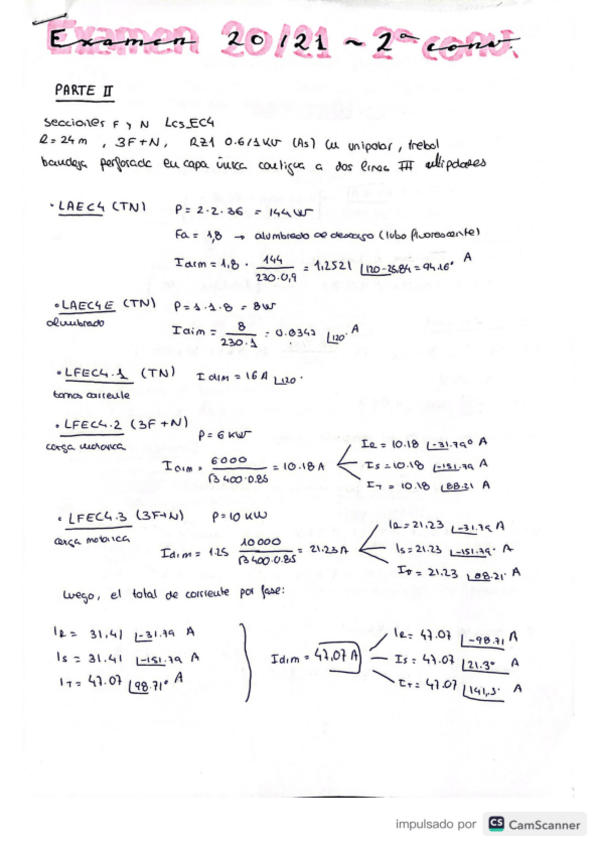 Examen 20/21 ~ 2ª conv.
PARTE II
Secciones F y N Lcs_EC4
l = 24 m , 3F+N, RZ1 0.6/1KV (As) Cu unipolar, trebol
bandeja perforada en capa única contigua a dos lineas III multipolares
· LAEC4 (TN) P = 2·2·36 = 144 W
Fa = 1,8 → alumbrado de descarga (tubo fluorescente)
Idim = 1,8 · 144 / 230·0,9 = 1,2521 ∠120-25.84 = 94.16° A
· LAEC4E (TN) P = 1·1·8 = 8W
alumbrado
Idim = 8 / 230·1 = 0.0347 ∠120° A
· LFEC4.1 (TN) Idim = 16 A ∠120°
tomas corriente
· LFEC4.2 (3F+N) P = 6 KW
carga motorica
Idim = 6000 / √3 400·0.85 = 10.18 A
IR = 10.18 ∠-31.79° A
Is = 10.18 ∠-151.79 A
IT = 10.18 ∠88.21 A
· LFEC4.3 (3F+N) P = 10 KW
carga motorica
Idim = 1.25 10000 / √3 400·0.85 = 21.23 A
IR = 21.23 ∠-31.79 A
Is = 21.23 ∠-151.79° A
IT = 21.23 ∠88.21° A
Luego, el total de corriente por fase:
IR = 31.41 ∠-31.79 A
Is = 31.41 ∠-151.79 A
IT = 47.07 ∠98.71° A
Idim = 47,07 A
IR = 47.07 ∠-98.71 A
Is = 47.07 ∠21.3° A
IT = 47.07 ∠141,3° A
impulsado por CS CamScanner